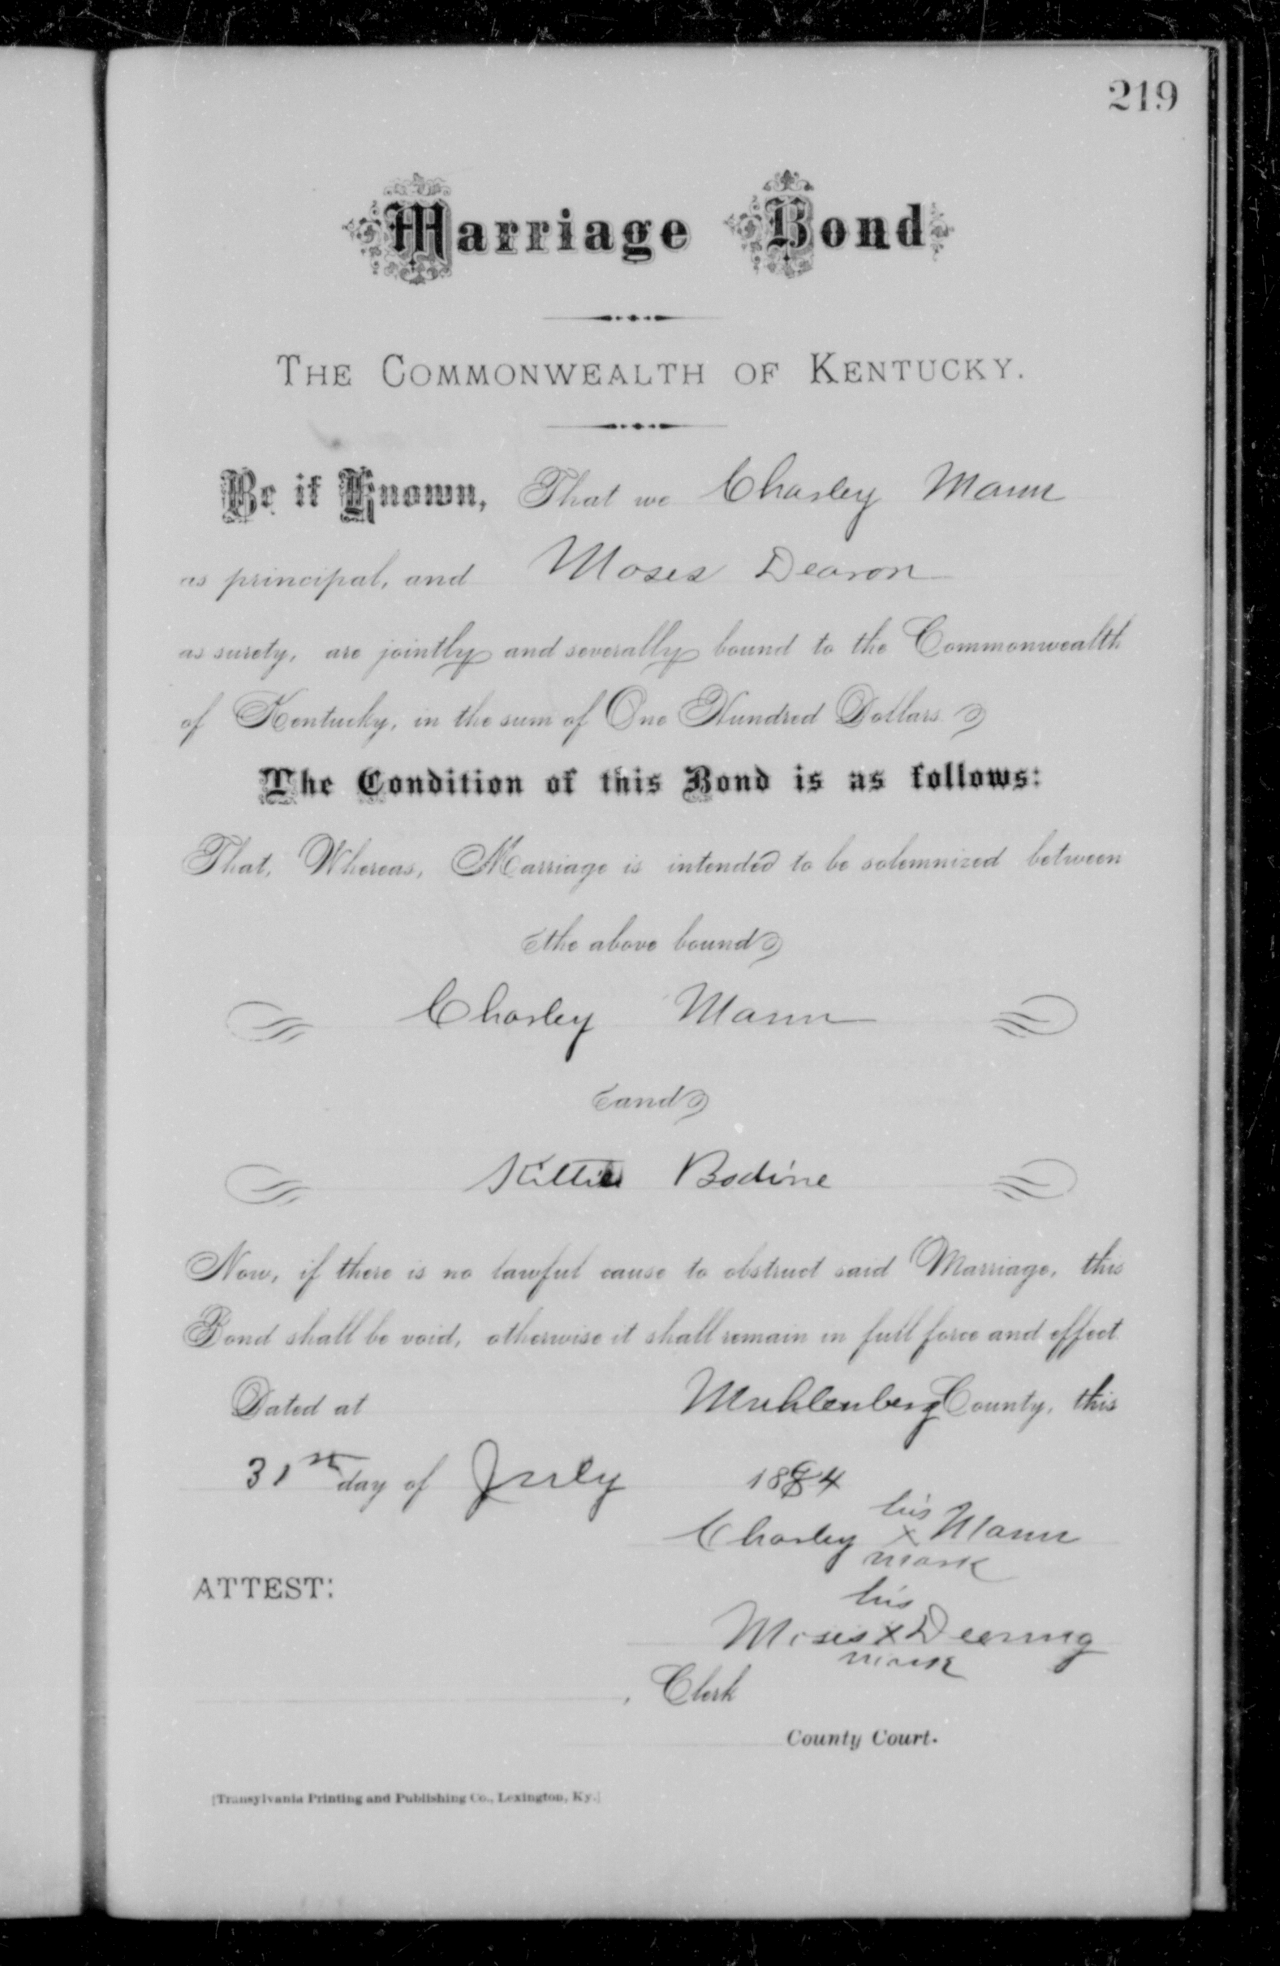 219
Marriage Bond
THE COMMONWEALTH OF KENTUCKY.
Be it Known, That we Charley Mann
as principal, and Moses Dearon
as surety, are jointly and severally bound to the Commonwealth
of Kentucky, in the sum of One Hundred Dollars.
The Condition of this Bond is as follows:
That, Whereas, Marriage is intended to be solemnized between
the above bound
Charley Mann
and
Kittie Bodine
Now, if there is no lawful cause to obstruct said Marriage, this
Bond shall be void, otherwise it shall remain in full force and effect.
Dated at Muhlenberg County, this
31st day of July 1894
his
Charley x Mann
mark
ATTEST:
his
Moses x Deering
mark
, Clerk
County Court.
[Transylvania Printing and Publishing Co., Lexington, Ky.]